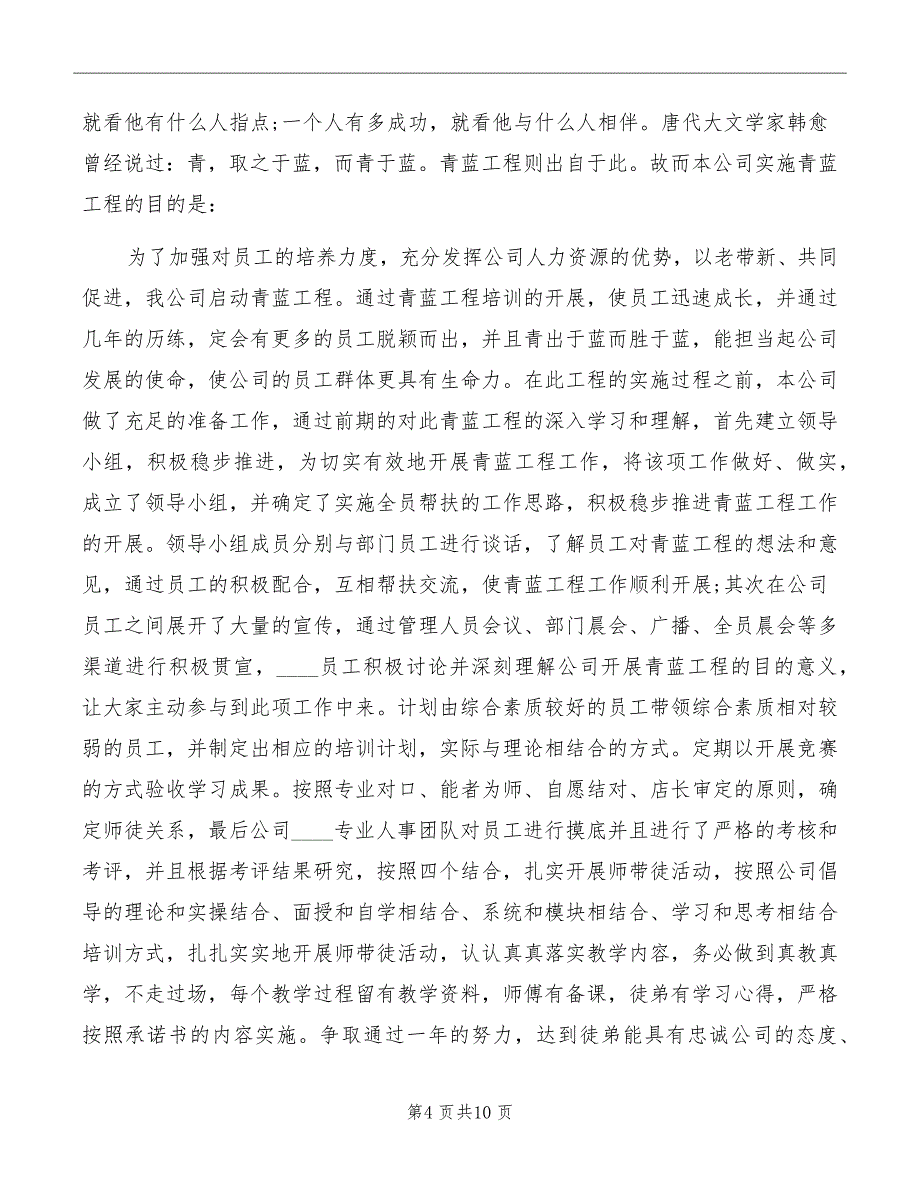 就看他有什么人指点;一个人有多成功，就看他与什么人相伴。唐代大文学家韩愈
曾经说过：青，取之于蓝，而青于蓝。青蓝工程则出自于此。故而本公司实施青蓝
工程的目的是：
为了加强对员工的培养力度，充分发挥公司人力资源的优势，以老带新、共同
促进，我公司启动青蓝工程。通过青蓝工程培训的开展，使员工迅速成长，并通过
几年的历练，定会有更多的员工脱颖而出，并且青出于蓝而胜于蓝，能担当起公司
发展的使命，使公司的员工群体更具有生命力。在此工程的实施过程之前，本公司
做了充足的准备工作，通过前期的对此青蓝工程的深入学习和理解，首先建立领导
小组，积极稳步推进，为切实有效地开展青蓝工程工作，将该项工作做好、做实，
成立了领导小组，并确定了实施全员帮扶的工作思路，积极稳步推进青蓝工程工作
的开展。领导小组成员分别与部门员工进行谈话，了解员工对青蓝工程的想法和意
见，通过员工的积极配合，互相帮扶交流，使青蓝工程工作顺利开展;其次在公司
员工之间展开了大量的宣传，通过管理人员会议、部门晨会、广播、全员晨会等多
渠道进行积极贯宣，____员工积极讨论并深刻理解公司开展青蓝工程的目的意义，
让大家主动参与到此项工作中来。计划由综合素质较好的员工带领综合素质相对较
弱的员工，并制定出相应的培训计划，实际与理论相结合的方式。定期以开展竞赛
的方式验收学习成果。按照专业对口、能者为师、自愿结对、店长审定的原则，确
定师徒关系，最后公司____专业人事团队对员工进行摸底并且进行了严格的考核和
考评，并且根据考评结果研究，按照四个结合，扎实开展师带徒活动，按照公司倡
导的理论和实操结合、面授和自学相结合、系统和模块相结合、学习和思考相结合
培训方式，扎扎实实地开展师带徒活动，认认真真落实教学内容，务必做到真教真
学，不走过场，每个教学过程留有教学资料，师傅有备课，徒弟有学习心得，严格
按照承诺书的内容实施。争取通过一年的努力，达到徒弟能具有忠诚公司的态度、
第4 页共10 页